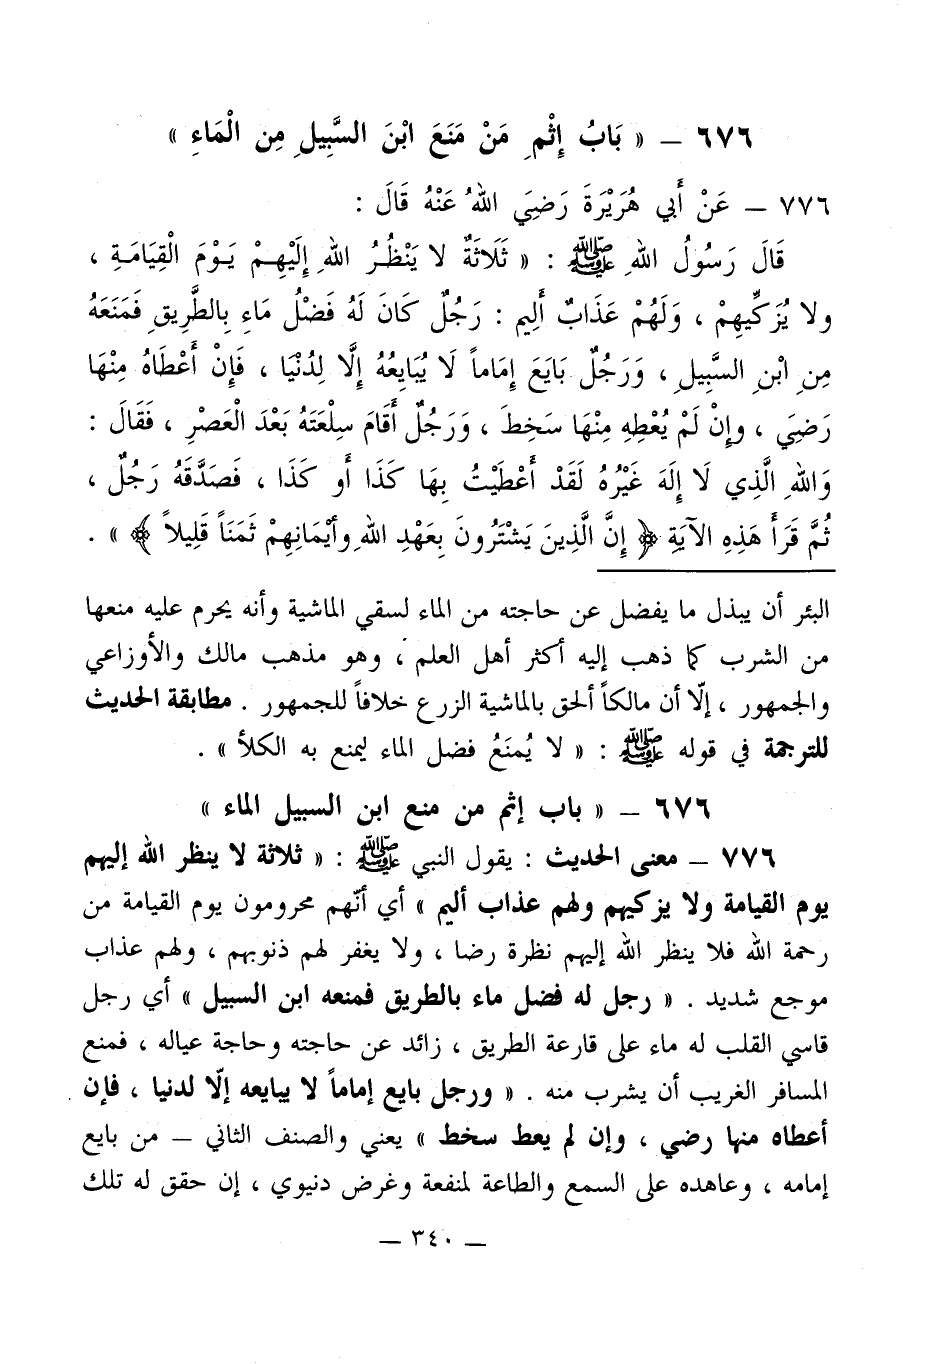 ٦٧٦ – « بَابُ إِثْمِ مَنْ مَنَعَ ابْنَ السَّبِيلِ مِن الْمَاءِ »
٧٧٦ – عَنْ أَبي هُرَيْرَةَ رَضِيَ اللهُ عَنْهُ قَالَ :
قَالَ رَسُولُ اللهِ ﷺ : « ثَلَاثَةٌ لا يَنْظُرُ اللهِ إِلَيْهِمْ يَوْمَ الْقِيَامَةِ ،
ولا يُزَكِّيهِمْ ، وَلَهُمْ عَذَابٌ أَلِيم : رَجُلٌ كَانَ لَهُ فَضْلُ مَاءٍ بِالطَّرِيقِ فَمَنَعَهُ
مِنِ ابْنِ السَّبِيلِ ، وَرَجُلٌ بَايَعَ إِمَاماً لَا يُبَايِعُهُ إِلَّا لِدُنْيَا ، فَإِنْ أَعْطَاهُ مِنْهَا
رَضِيَ ، وإِنْ لَمْ يُعْطِهِ مِنْهَا سَخِطَ ، وَرَجُلٌ أَقَامَ سِلْعَتَهُ بَعْدَ الْعَصْرِ ، فَقَالَ :
وَاللهِ الَّذِي لَا إِلَهَ غَيْرُهُ لَقَدْ أَعْطَيْتُ بِهَا كَذَا أَو كَذَا ، فَصَدَّقَهُ رَجُلٌ ،
ثُمَّ قَرَأَ هَذِهِ الآيَةِ ﴿ إِنَّ الَّذِينَ يَشْتَرُونَ بِعَهْدِ اللهِ وأَيْمَانِهِمْ ثَمَنَاً قَلِيلاً ﴾ » .
البئر أن يبذل ما يفضل عن حاجته من الماء لسقي الماشية وأنه يحرم عليه منعها
من الشرب كما ذهب إليه أكثر أهل العلم ، وهو مذهب مالك والأوزاعي
والجمهور ، إلّا أن مالكاً ألحق بالماشية الزرع خلافاً للجمهور . مطابقة الحديث
للترجمة في قوله ﷺ : « لا يُمنَعُ فضل الماء ليمنع به الكلأ » .
٦٧٦ – « باب إثم من منع ابن السبيل الماء »
٧٧٦ – معنى الحديث : يقول النبي ﷺ : « ثلاثة لا ينظر الله إليهم
يوم القيامة ولا يزكيهم ولهم عذاب أليم » أي أنّهم محرومون يوم القيامة من
رحمة الله فلا ينظر الله إليهم نظرة رضا ، ولا يغفر لهم ذنوبهم ، ولهم عذاب
موجع شديد . « رجل له فضل ماء بالطريق فمنعه ابن السبيل » أي رجل
قاسي القلب له ماء على قارعة الطريق ، زائد عن حاجته وحاجة عياله ، فمنع
المسافر الغريب أن يشرب منه . « ورجل بايع إماماً لا يبايعه إلّا لدنيا ، فإن
أعطاه منها رضي ، وإن لم يعط سخط » يعني والصنف الثاني – من بايع
إمامه ، وعاهده على السمع والطاعة لمنفعة وغرض دنيوي ، إن حقق له تلك
– ٣٤٠ –